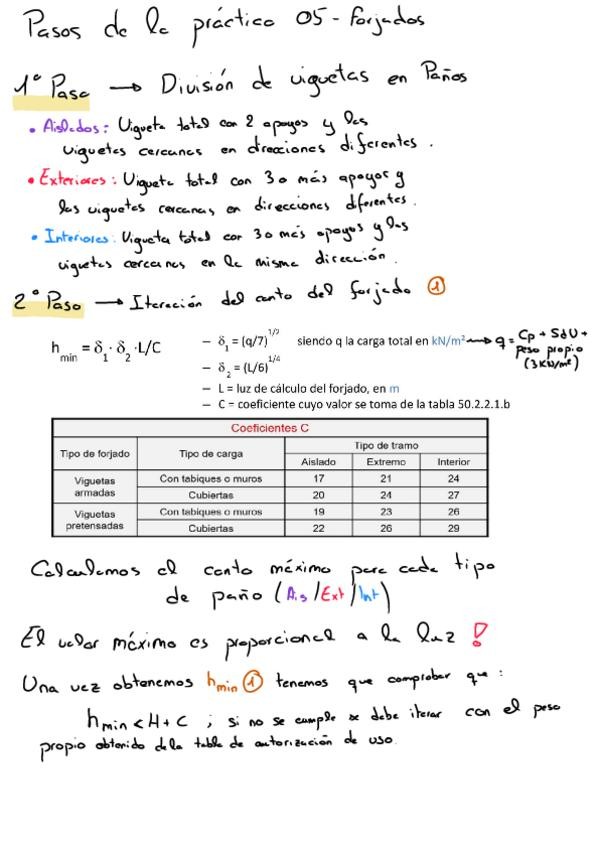 Pasos de la práctica 05 - Forjados
1º Paso → División de viguetas en Paños
• Aislados: Vigueta total con 2 apoyos y las
viguetas cercanas en direcciones diferentes.
• Exteriores: Vigueta total con 3 o más apoyos y
las viguetas cercanas en direcciones diferentes.
• Interiores: Vigueta total con 3 o más apoyos y las
viguetas cercanas en la misma dirección.
2º Paso → Iteración del canto del forjado ①
h min = δ1 · δ2 · L/C
– δ1 = (q/7)^1/2 siendo q la carga total en kN/m² → q = Cp + SdU +
peso propio
(3KN/m²)
– δ2 = (L/6)^1/4
– L = luz de cálculo del forjado, en m
– C = coeficiente cuyo valor se toma de la tabla 50.2.2.1.b
Coeficientes C
Tipo de forjado Tipo de carga Tipo de tramo
Aislado Extremo Interior
Viguetas armadas Con tabiques o muros 17 21 24
Cubiertas 20 24 27
Viguetas pretensadas Con tabiques o muros 19 23 26
Cubiertas 22 26 29
Calculamos el canto máximo para cada tipo
de paño (Ais/Ext/Int)
El valor máximo es proporcional a la luz !
Una vez obtenemos hmin ① tenemos que comprobar que:
hmin < H + C ; si no se cumple se debe iterar con el peso
propio obtenido de la tabla de autorización de uso.